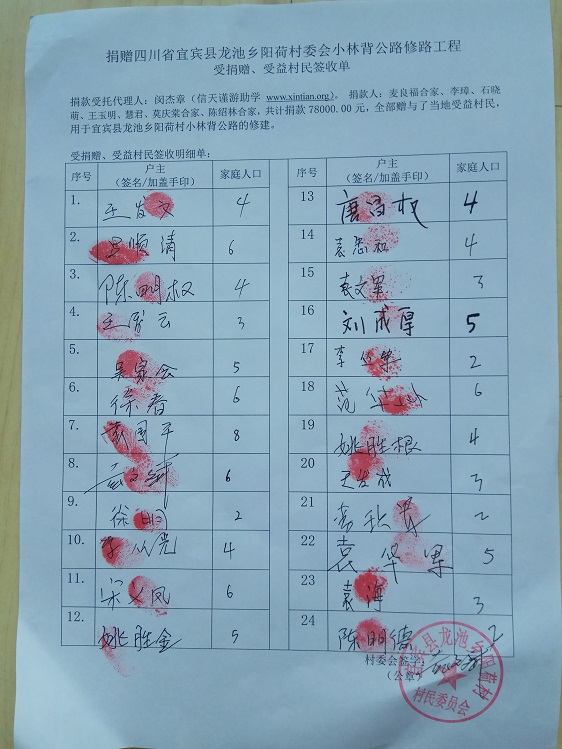 捐赠四川省宜宾县龙池乡阳荷村委会小林背公路修路工程
受捐赠、受益村民签收单
捐款受托代理人：闵杰章（信天谨游助学 www.xintian.org）。 捐款人：麦良福合家、李璋、石晓
萌、王玉明、慧君、莫庆棠合家、陈绍林合家，共计捐款 78000.00 元，全部赠与了当地受益村民，
用于宜宾县龙池乡阳荷村小林背公路的修建。
受捐赠、受益村民签收明细单：
序号 户主 （签名/加盖手印） 家庭人口
1. 王发文 4
2. 顺清 6
3. 陈明权 4
4. 王云 3
5. 吴家会 5
6. 徐春 6
7. 袁国平 8
8. 6
9. 徐明 2
10. 李从光 4
11. 宋义凤 6
12. 姚胜金 5
序号 户主 （签名/加盖手印） 家庭人口
13 唐昌权 4
14 袁忠权 4
15 袁文军 3
16 刘成厚 5
17 李 2
18 范 6
19 姚胜根 4
20 王发成 3
21 2
22 袁华 5
23 袁海 3
24 陈明德 2
村委会签字：
（公章）
宜宾县龙池乡阳荷村
村民委员会